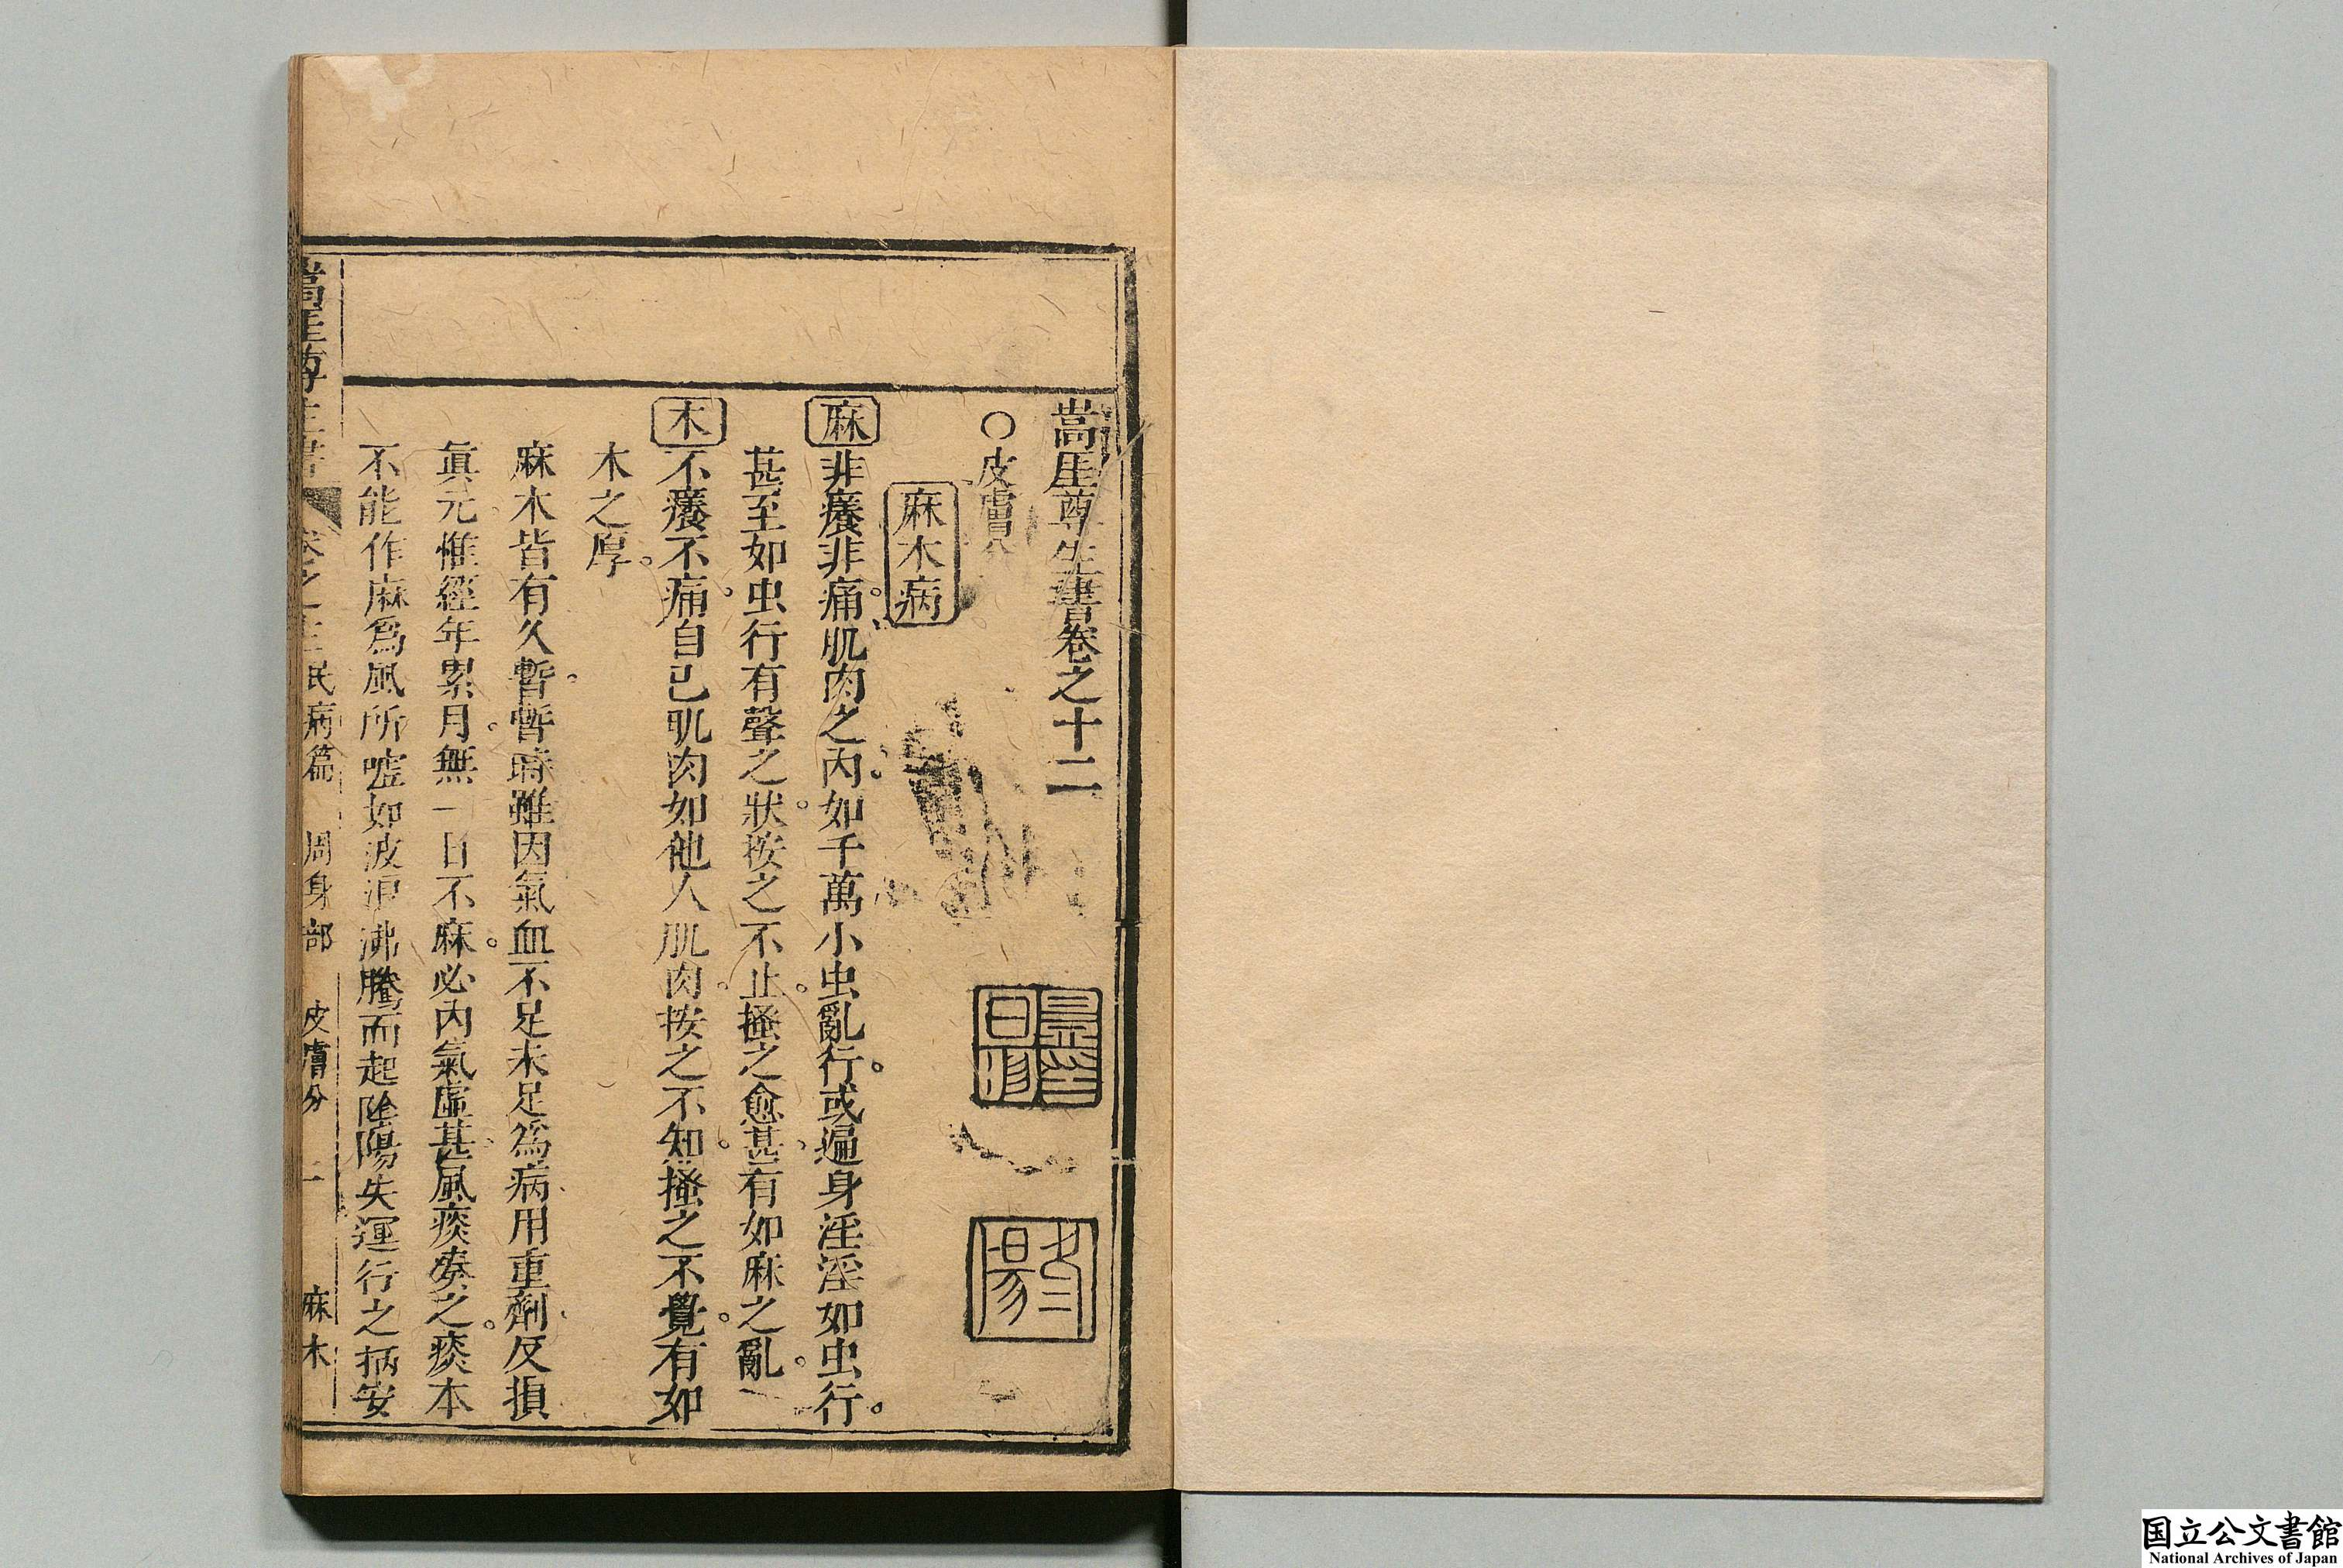 嵩厓尊生書卷之十二
○皮膚分
麻木病
麻非癢非痛。肌肉之內。如千萬小虫亂行。或遍身淫淫如虫行。
甚至如虫行有聲之狀。按之不止。搔之愈甚。有如麻之亂。
木不癢不痛。自己肌肉如他人肌肉。按之不知。搔之不覺。有如
木之厚。
麻木皆有久暫。暫時雖因氣血不足。未足為病。用重劑。反損
眞元。惟經年累月。無一日不麻。必內氣虛甚。風痰湊之。痰本
不能作麻。為風所嘘。如波浪沸騰而起。陰陽失運行之柄。安
嵩厓尊生書 卷之十二 氏病篇 周身部 皮膚分 一 麻木
国立公文書館
National Archives of Japan